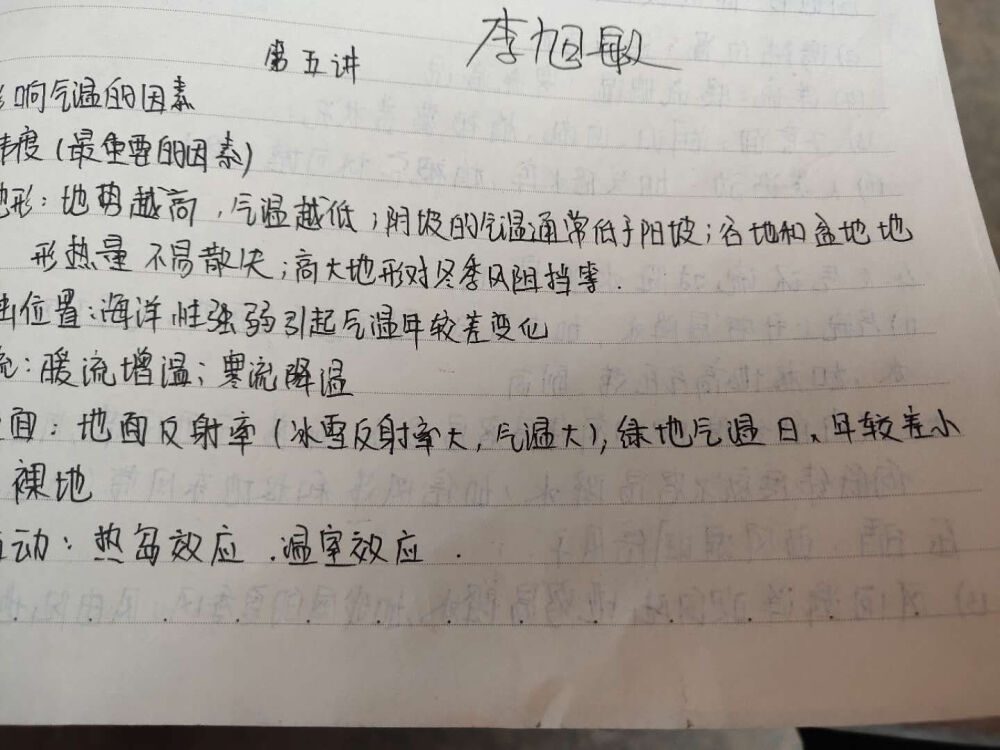 李旭敏
第五讲
响气温的因素
纬度(最重要的因素)
地形:地势越高,气温越低;阴坡的气温通常低于阳坡;谷地和盆地地
形热量不易散失;高大地形对冬季风阻挡等.
位置:海洋性强弱引起气温年较差变化
流:暖流增温;寒流降温
面:地面反射率(冰雪反射率大,气温大),绿地气温日、年较差小
裸地
动:热岛效应.温室效应.